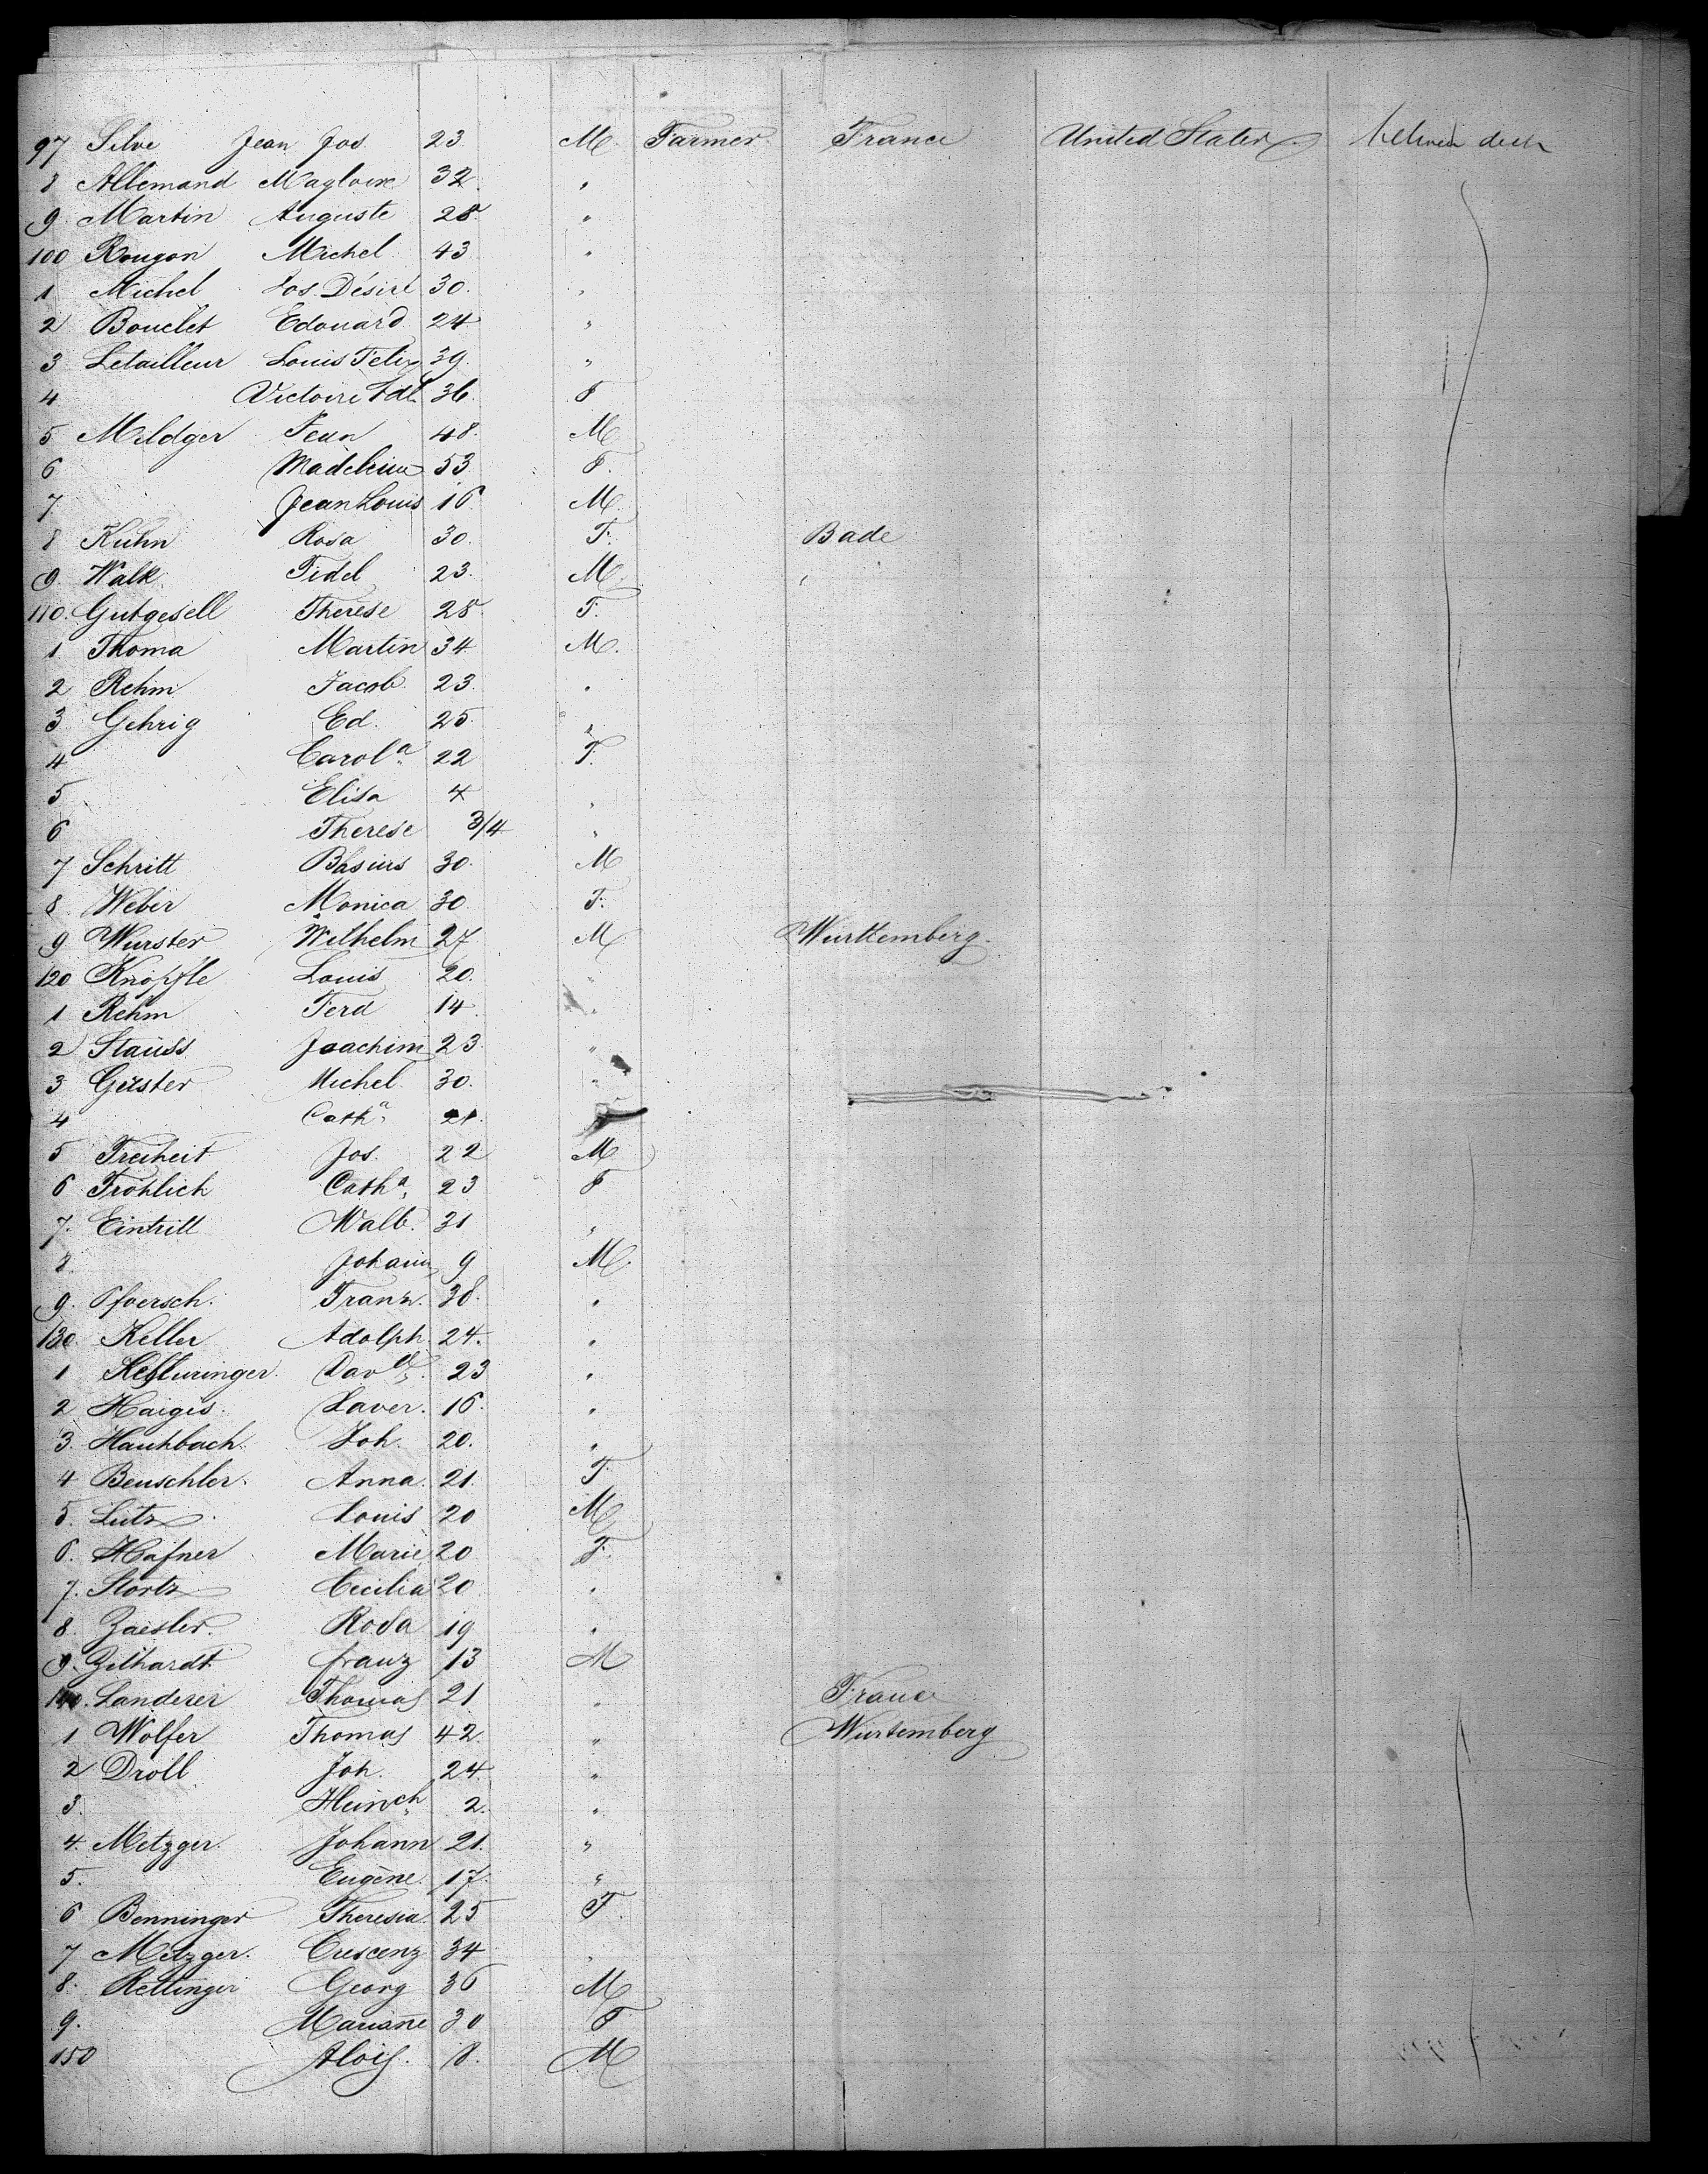 97 Silve Jean Jos. 23. M. Farmer France United States Between decks
8 Allemand Magloire 32. "
9. Martin Auguste 28. "
100 Rougon Michel 43 "
1 Michel Jos. Désiré 30. "
2 Bouclet Edouard 24 "
3 Letailleur Louis Felix 39. "
4 Victoire Adl. 36. F
5 Mildger Jean 48. M
6 Madeleine 53 F.
7. Jean Louis 16. M.
8 Kuhn Rosa 30. F. Bade
9. Walk. Fidel 23. M.
110. Gutgesell Therese 28. F.
1. Thoma Martin 34 M.
2 Rehm Jacob. 23. "
3 Gehrig Ed. 25. "
4 Carola. 22 F.
5. Elisa 4 "
6 Therese 3/4 "
7 Schritt 30. M
8 Weber Monica 30. F.
9 Wurster Wilhelm 27. M Württemberg.
120 Knöpfle Louis 20. "
1 Rehm Ferd 14. "
2 Stauss Joachim 23. "
3 Michel 30. "
4 Catha. 21. F
5 Freiheit Jos. 22 M
6 Frohlich Catha. 23 F
7. Eintritt Walb. 31 "
8. Johann 9 M.
9. Pfoersch. Franz. 38. "
130. Keller Adolph 24. "
1 Davd. 23 "
2 Haigis. Xaver. 16. "
3. Joh. 20. "
4 Beuschler. Anna. 21. F
5. Lutz. Louis 20 M
6. Hafner Marie 20 F.
7. Stortz Cecilia 20 "
8. Zaesler. Rosa 19 "
9. Zilhardt. franz 13 M
140. Landerer Thomas 21 " France
1 Wolfer Thomas 42. " Wurtemberg
2 Droll Joh. 24. "
3. Heinch. 2. "
4. Metzger. Johann 21. "
5. Eugène. 17. "
6 Benninger Theresia. 25 F.
7 Metzger. Crescenz 34 "
8. Rettinger Georg 36 M
9. Mariane 30 F
150 Alois. 8. M